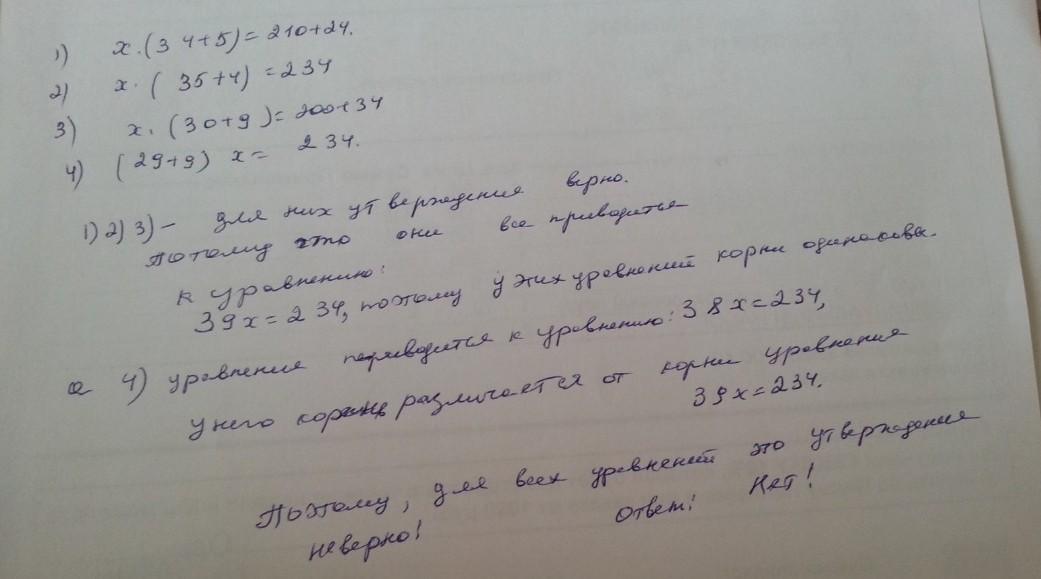 1) x.(34+5)=210+24.
2) x.(35+4)=234
3) x.(30+9)=200+34
4) (29+9) x= 234.
1) 2) 3) - для них утверждения верно.
потому что они все приводятся
к уравнению:
39x=234, поэтому у этих уравнений корни одинаковы.
а 4) уравнения переводится к уравнению: 38x=234,
у него корень различается от корни уравнения
39x=234.
Поэтому, для всех уравнений это утверждения
неверно! Ответ: Нет!